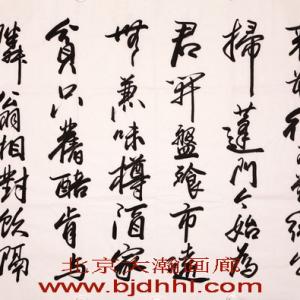 掃蓬門今始為
君開盤飧市遠
無兼味樽酒家
貧只舊醅肯与
隣翁相對飲隔
北京大瀚画廊
www.bjdhhl.com